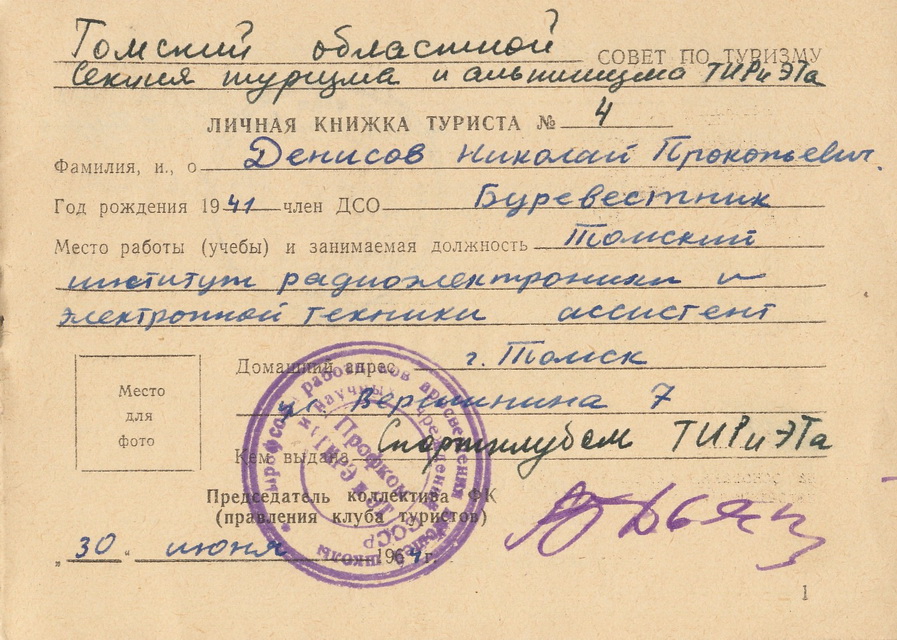 Томский областной СОВЕТ ПО ТУРИЗМУ
Секция туризма и альпинизма ТИРиЭТа
ЛИЧНАЯ КНИЖКА ТУРИСТА № 4
Фамилия, и., о Денисов Николай Прокопьевич.
Год рождения 1941 член ДСО Буревестник
Место работы (учебы) и занимаемая должность Томский
институт радиоэлектроники и
электронной техники ассистент
Место
для
фото
Домашний адрес г. Томск
ул Вершинина 7
Кем выдана Спортклубом ТИРиЭТа
Председатель коллектива ФК
(правления клуба туристов)
„30" июня 1964г.
работников просвещения высшей школы
и научных учреждений СССР
Профком
1